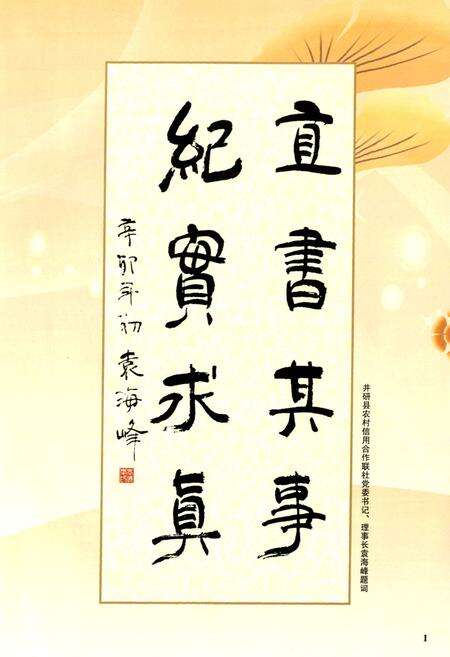 直書其事
紀實求真
辛卯年初 袁海峰
井研县农村信用合作联社党委书记、理事长袁海峰题词
1